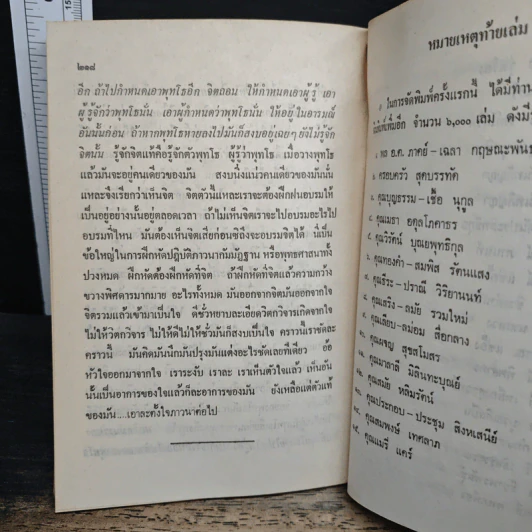 ๒๑๘
อีก ถ้าไปกำหนดเอาพุทโธอีก จิตถอน ให้กำหนดเอาผู้รู้ เอา
ผู้รู้จักว่าพุทโธนั่น เอาผู้กำหนดว่าพุทโธนั่น ให้อยู่ในอารมณ์
อันนั้นก่อน ถ้าหากพุทโธหายลงไปมันก็สงบอยู่เฉยๆ ยังไม่รู้จัก
จิตนั้น รู้จักจิตแท้คือรู้จักตัวพุทโธ ผู้รู้ว่าพุทโธ เมื่อวางพุทโธ
แล้วมันจะอยู่คนเดียวของมัน สงบนิ่งแน่วคนเดียวของมันนั่น
แหละจึงเรียกว่าเห็นจิต จิตตัวนี้แหละเราจะต้องฝึกฝนอบรมให้
เป็นอยู่อย่างนั้นอยู่ตลอดเวลา ถ้าไม่เห็นจิตเราจะไปอบรมอะไรไป
อบรมที่ไหน มันต้องเห็นจิตเสียก่อนซิถึงจะอบรมจิตได้ นี่เป็น
ข้อใหญ่ในการฝึกหัดปฏิบัติภาวนากัมมัฏฐาน หรือพุทธศาสนาทั้ง
ปวงหมด ฝึกหัดต้องฝึกหัดที่จิต ถ้าฝึกหัดที่จิตแล้วความกว้าง
ขวางพิศดารมากมาย อะไรทั้งหมด มันออกจากจิตมันออกจากใจ
จิตรวมแล้วเข้ามาเป็นใจ ดีชั่วหยาบละเอียดวิตกวิจารเกิดจากใจ
ไม่ให้วิตกวิจาร ไม่ให้ดีไม่ให้ชั่วมันก็สงบเป็นใจ คราวนี้เราชัดละ
คราวนี้ มันคิดมันนึกมันปรุงมันแต่งอะไรชัดเลยทีเดียว อ้อ
หัวใจออกมาจากใจ เราระงับ เราละ เราเห็นตัวใจแล้ว เห็นอัน
นั้นเป็นอาการของใจแล้วก็ละอาการของมัน ยังเหลือแต่ตัวแท้
ของมัน....เอาละตั้งใจภาวนาต่อไป
หมายเหตุท้ายเล่ม
ในการจัดพิมพ์ครั้งแรกนี้ ได้มีท่าน
จำนวน ๖,๐๐๐ เล่ม ดังมี
๑. พล อ.ต. ภาคย์ - เฉลา กฤษณะพันธ์
๒. ครอบครัว สุคบรรทัด
๓. คุณบุญธรรม - เชื้อ นุกูล
๔. คุณเมธา อตุลโภคาธร
๕. คุณวิรัตน์ บุณยพุทธิกุล
๖. คุณทองคำ - สมพิส รัตนแสง
๗. คุณธีระ - ปราณี วิริยานนท์
๘. คุณเสริง - สมัย รวมใหม่
๙. คุณเลียบ - สม้อม สื่อกลาง
๑๐. คุณเผชญ สุขสโมสร
๑๑. คุณมาลาลี มิลินทะบุณย์
๑๒. คุณสมัย หลิมรัตน์
๑๓. คุณประกอบ - ประชุม สิงหเสนีย์
๑๔. คุณสมพงษ์ เทศลาภ
๑๕. คุณแมรี่ แคร์